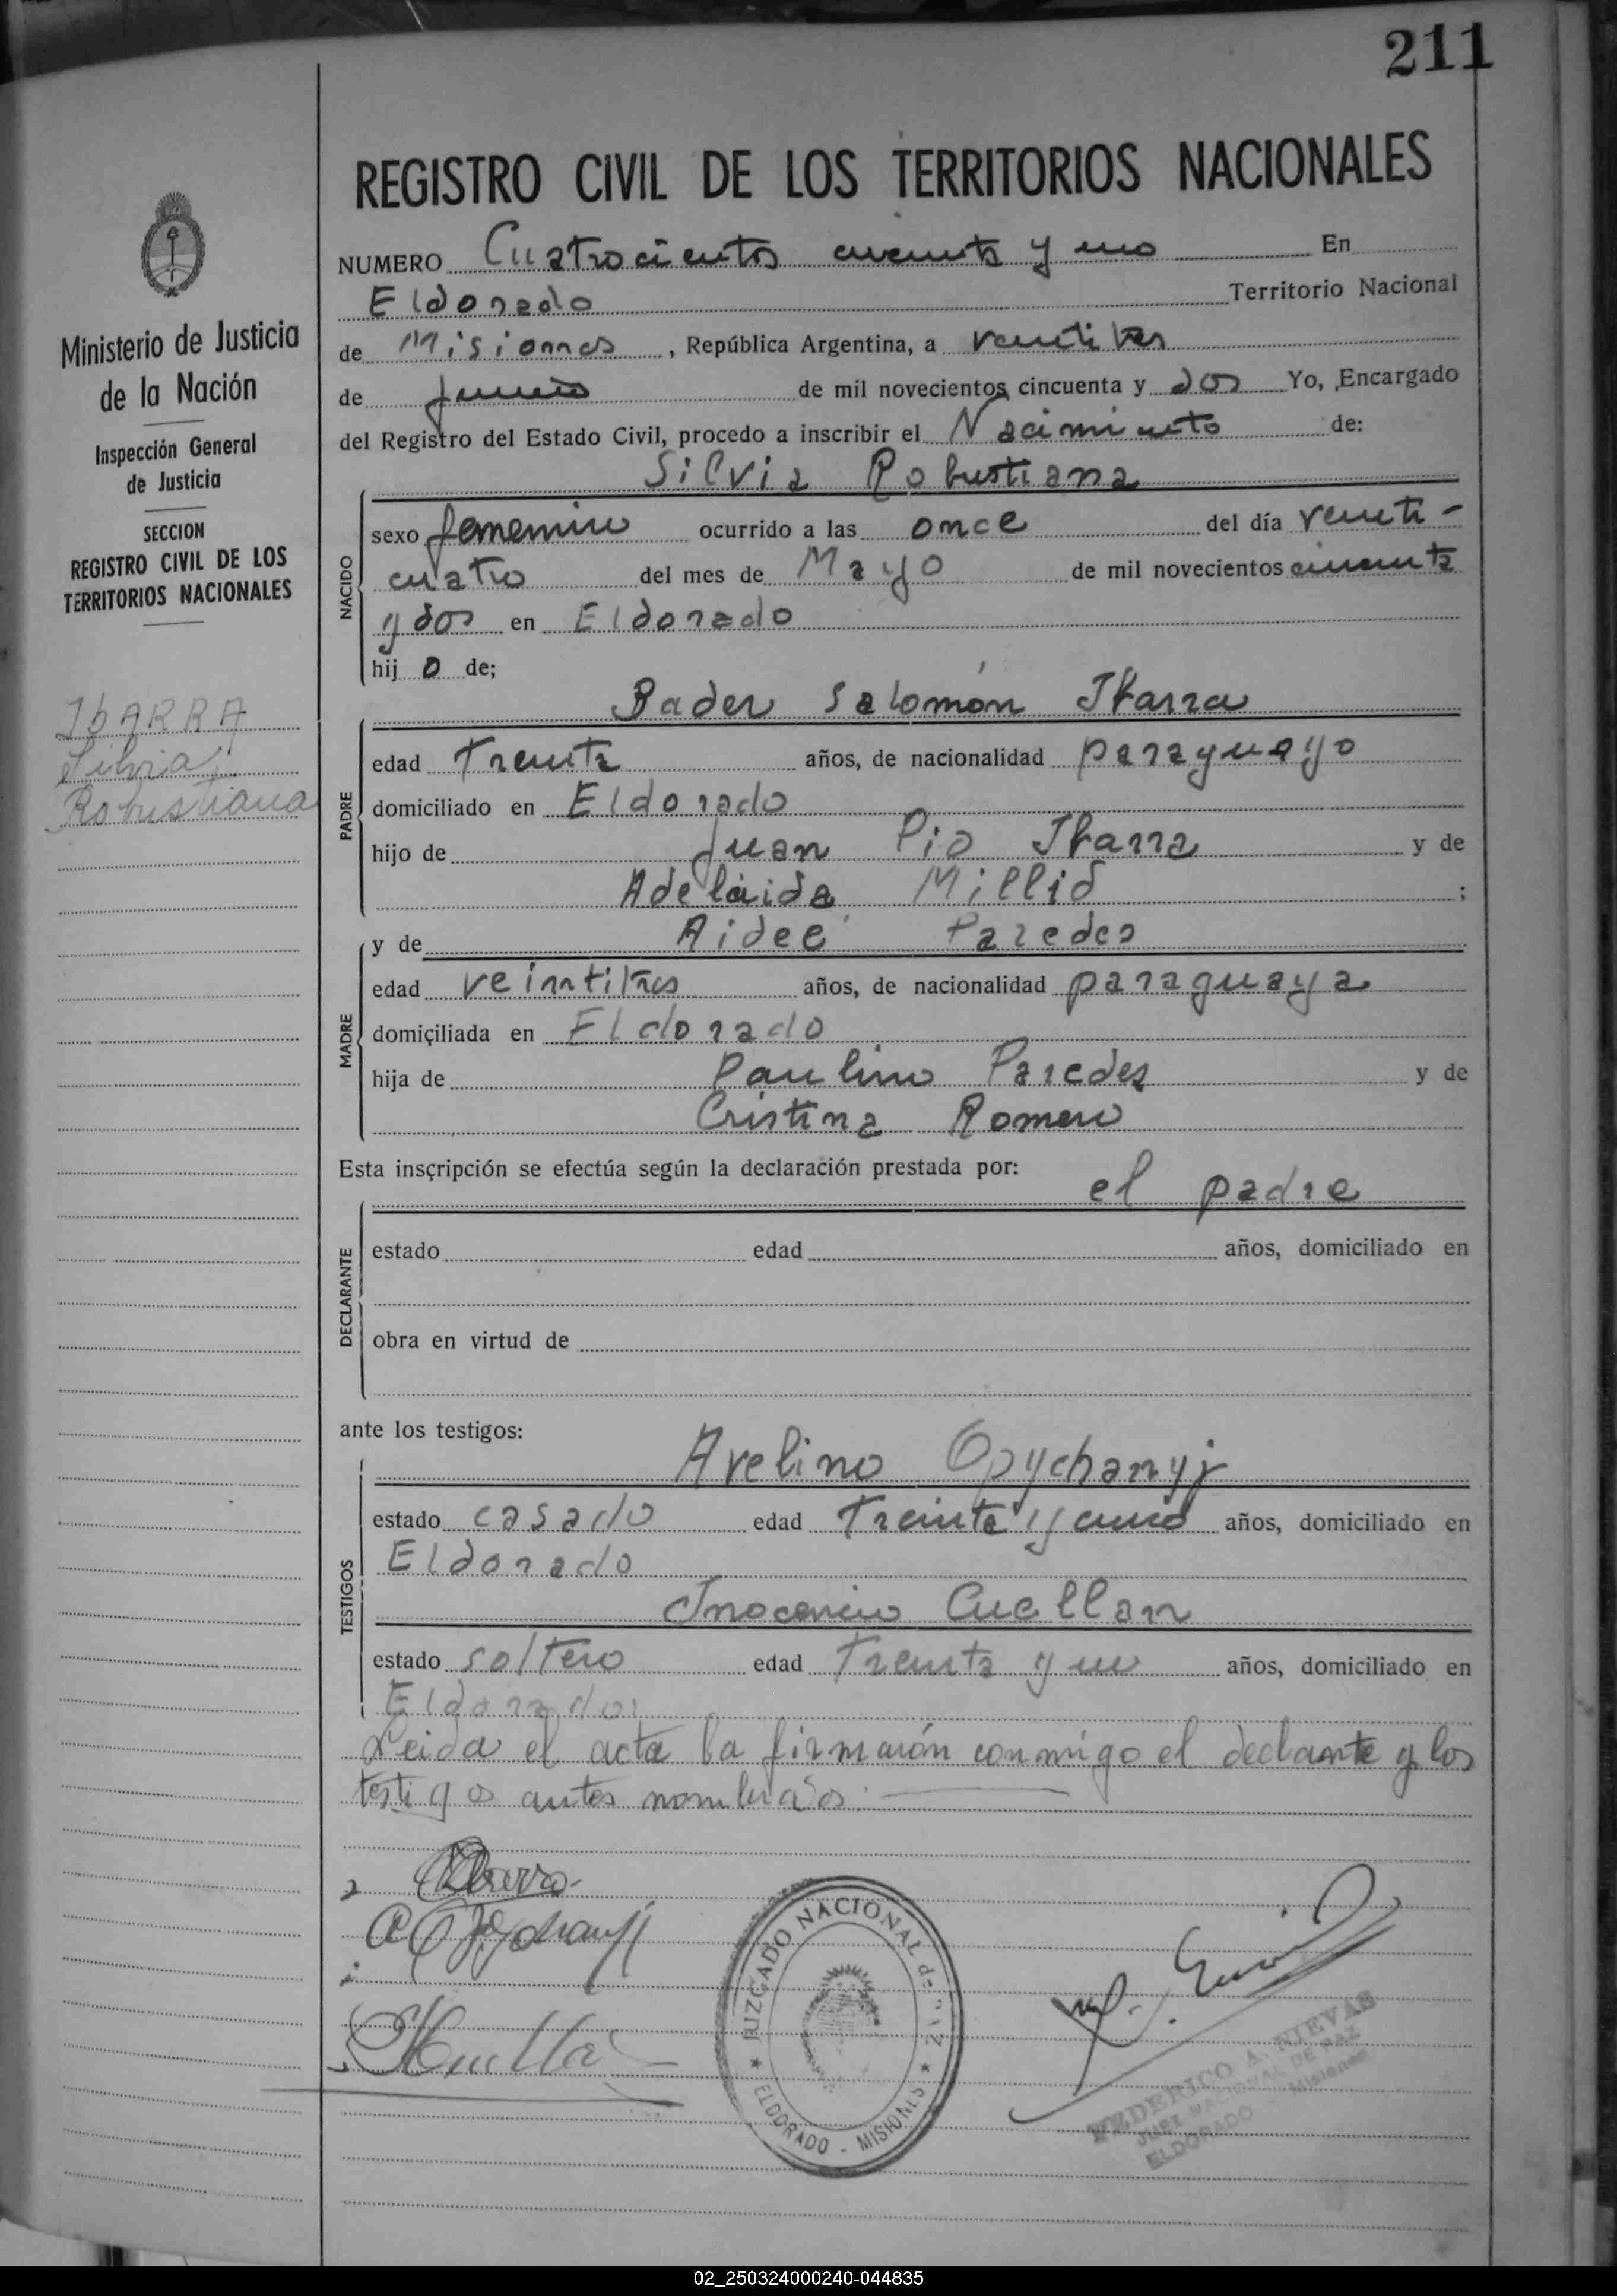 211
REGISTRO CIVIL DE LOS TERRITORIOS NACIONALES
NUMERO Cuatrocientos cuarenta y uno En
Eldorado Territorio Nacional
de Misiones, República Argentina, a veintitres
de Junio de mil novecientos cincuenta y dos Yo, Encargado
del Registro del Estado Civil, procedo a inscribir el Nacimiento de:
Silvia Robustiana
NACIDO
sexo femenino ocurrido a las once del día veinti-
cuatro del mes de Mayo de mil novecientos cincuenta
y dos en Eldorado
hij o de;
Bader Salomón Ibarra
PADRE
edad Treinta años, de nacionalidad paraguayo
domiciliado en Eldorado
hijo de Juan Pio Ibarra y de
Adelaida ;
y de Aideé Paredes
MADRE
edad veintitres años, de nacionalidad paraguaya
domiciliada en Eldorado
hija de Paulino Paredes y de
Cristina Romero
Esta inscripción se efectúa según la declaración prestada por:
el padre
DECLARANTE
estado edad años, domiciliado en
obra en virtud de
ante los testigos:
TESTIGOS
Avelino Opychanyj
estado casado edad Treinta y cinco años, domiciliado en
Eldorado
Inocencio Cuellar
estado soltero edad Treinta y un años, domiciliado en
Eldorado:
Leida el acta la firmarón conmigo el declante y los
testigos antes nombrados.
Ministerio de Justicia
de la Nación
Inspección General
de Justicia
SECCION
REGISTRO CIVIL DE LOS
TERRITORIOS NACIONALES
IbARRA
Silvia
Robustiana
JUZGADO NACIONAL de PAZ
ELDORADO - MISIONES
FEDERICO A. NIEVAS
JUEZ NACIONAL DE PAZ
ELDORADO - Misiones
02_250324000240-044835